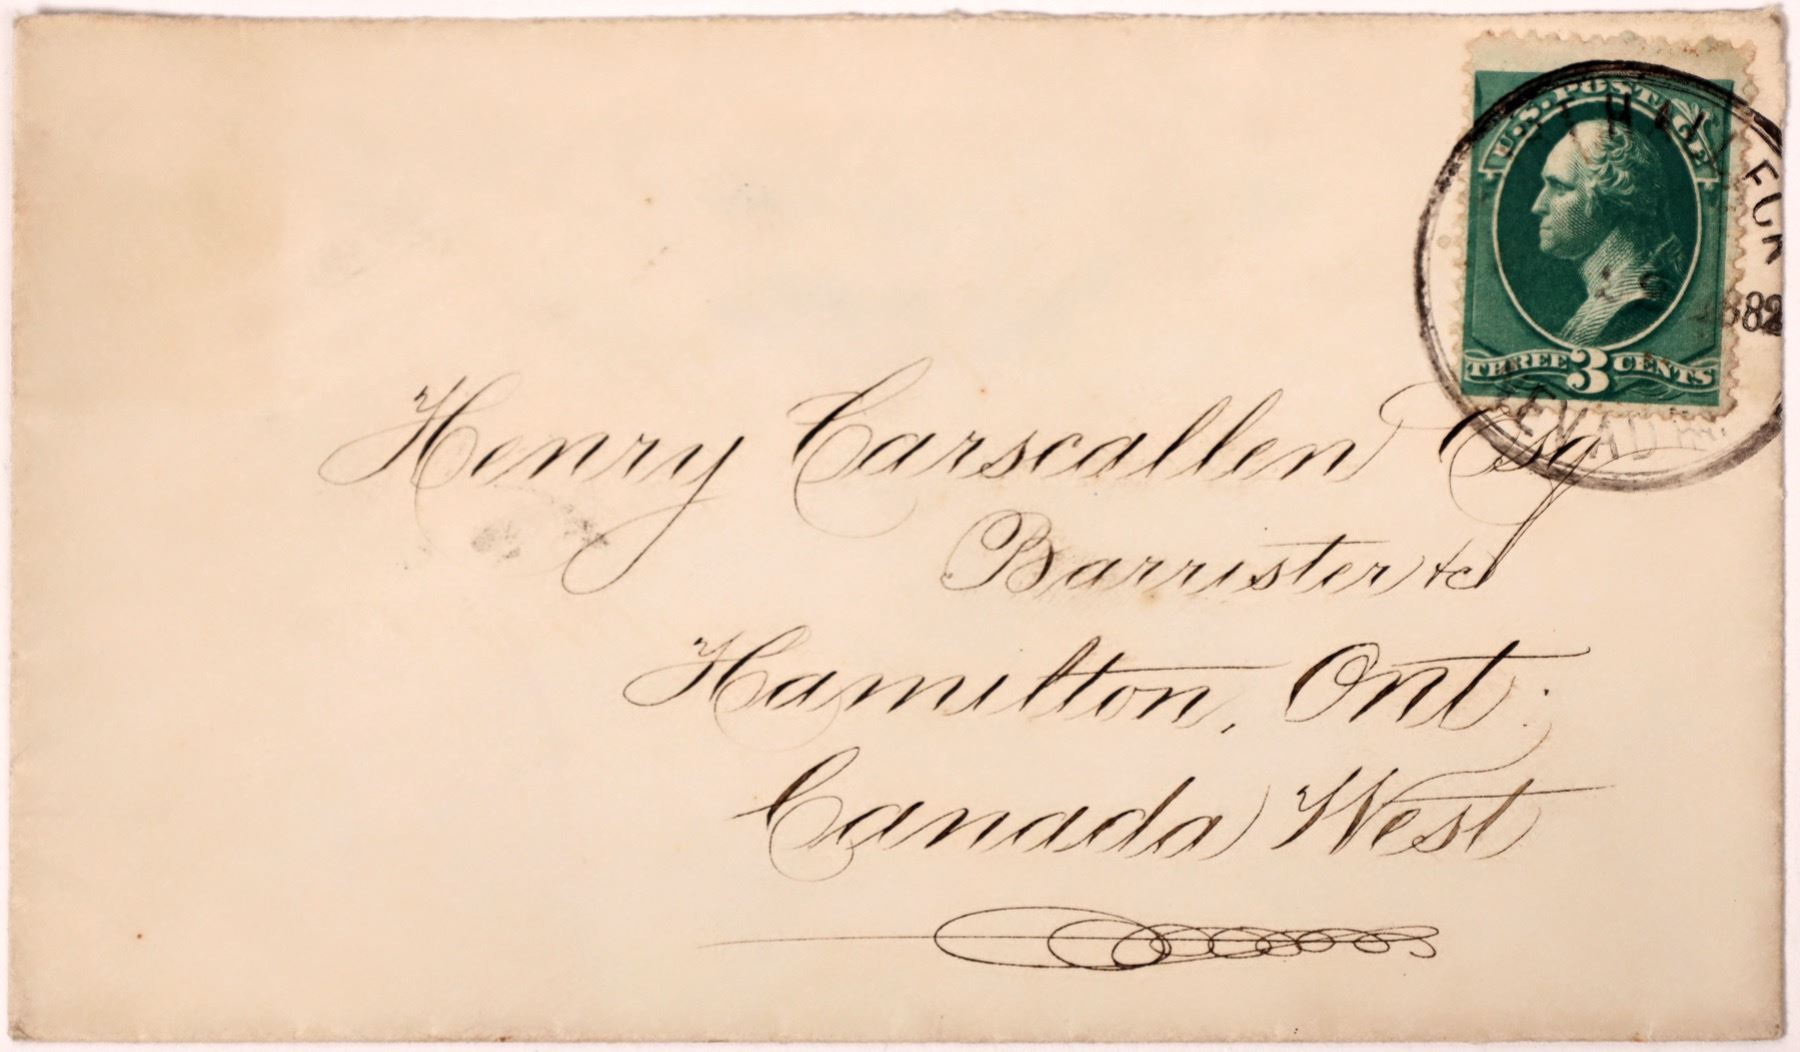 U.S. POSTAGE
THREE 3 CENTS
1882
Henry Carscallen Esq
Barrister &c
Hamilton, Ont.
Canada West